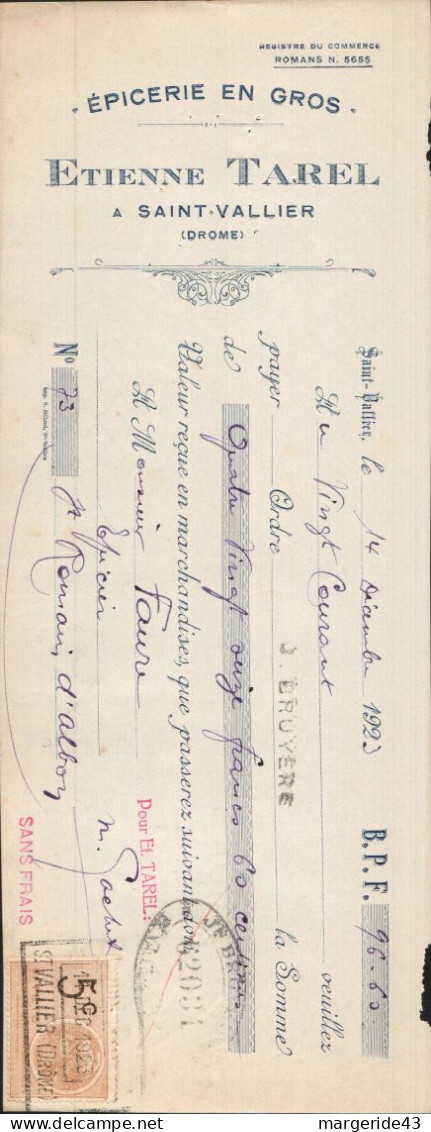 REGISTRE DU COMMERCE
ROMANS N. 5655
ÉPICERIE EN GROS
ETIENNE TAREL
A SAINT-VALLIER
(DROME)
Saint-Vallier, le 14 Décembre 1923 B. P. F. 96.60
Au Vingt Courant veuillez
payer Ordre J. BRUYERE la Somme
de Quatre Vingt seize francs 60 centimes
Valeur reçue en marchandises, que passerez suivant
A Monsieur Faure
Pour Et. TAREL:
Epicier
N° 73 St Romain d'Albon
SANS FRAIS
62031
5c
1923
ST VALLIER (DRÔME)
margeride43